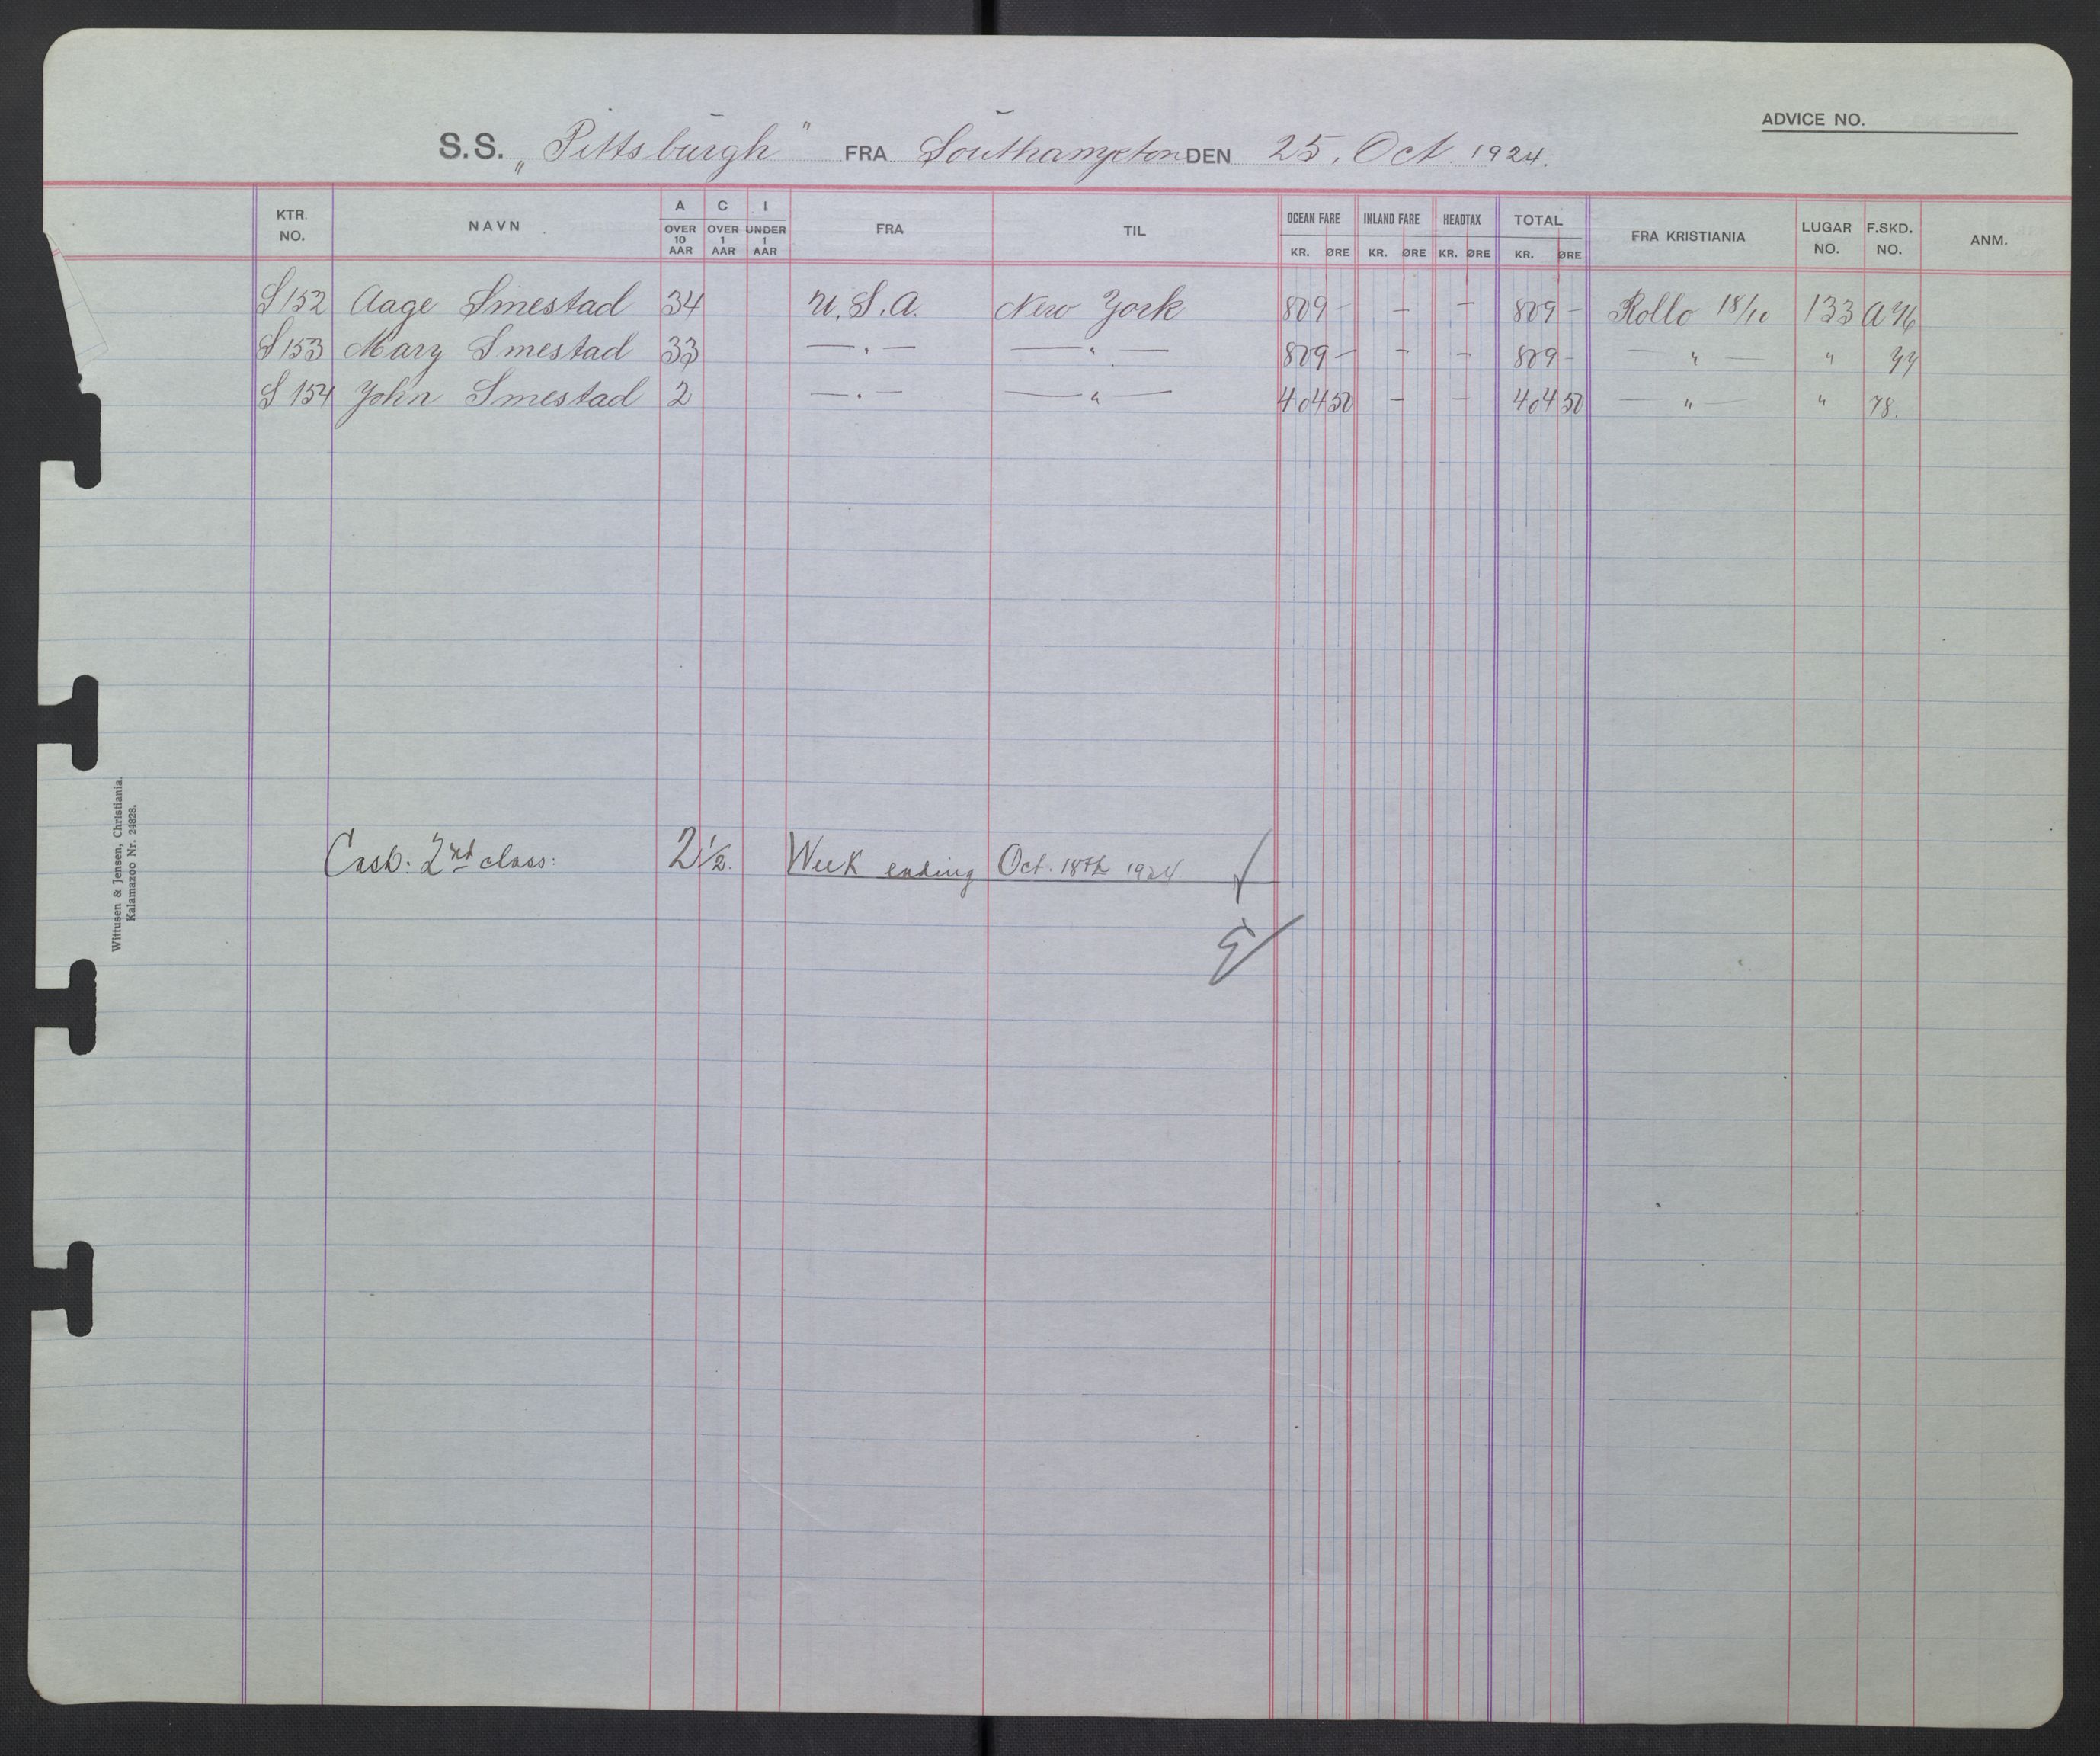 ADVICE NO.
S.S. „Pittsburgh" FRA Southampton DEN 25. Oct. 1924.
KTR. NO. NAVN A OVER 10 AAR C OVER 1 AAR I UNDER 1 AAR FRA TIL OCEAN FARE KR. ØRE INLAND FARE KR. ØRE HEADTAX KR. ØRE TOTAL KR. ØRE FRA KRISTIANIA LUGAR NO. F.SKD. NO. ANM.
S152 Aage Smestad 34 U.S.A. New York 809 - - - 809 - Rollo 18/10 133 A 76
S153 Mary Smestad 33 — " — — " — 809 - - - 809 - — " — " 77
S154 John Smestad 2 — " — — " — 404 50 - - 404 50 — " — " 78.
Cash: 2nd class: 2 1/2. Week ending Oct. 18th 1924
Wittusen & Jensen, Christiania.
Kalamazoo Nr. 24828.